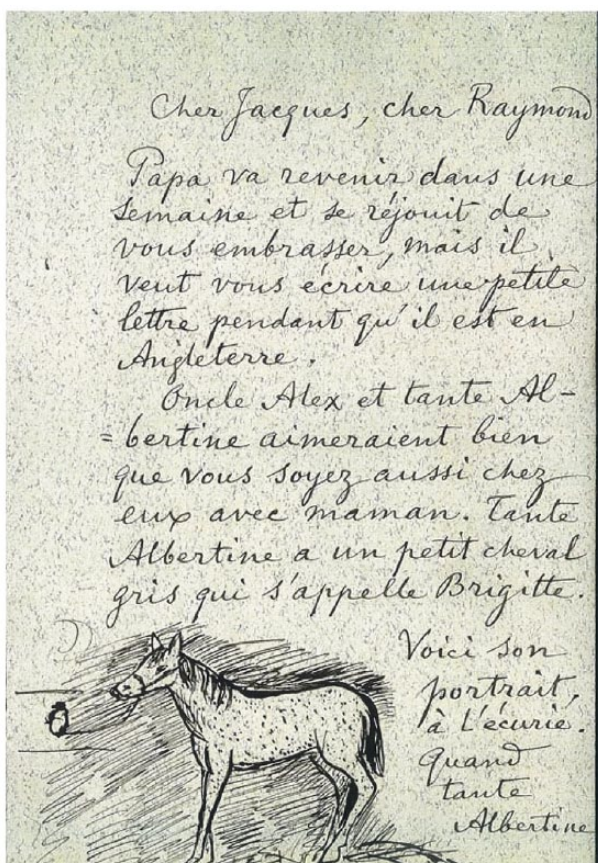 Cher Jacques, cher Raymond
Papa va revenir dans une
semaine et se réjouit de
vous embrasser, mais il
veut vous écrire une petite
lettre pendant qu'il est en
Angleterre.
Oncle Alex et tante Al-
=bertine aimeraient bien
que vous soyez aussi chez
eux avec maman. Tante
Albertine a un petit cheval
gris qui s'appelle Brigitte.
Voici son
portrait,
à l'écurie.
Quand
tante
Albertine